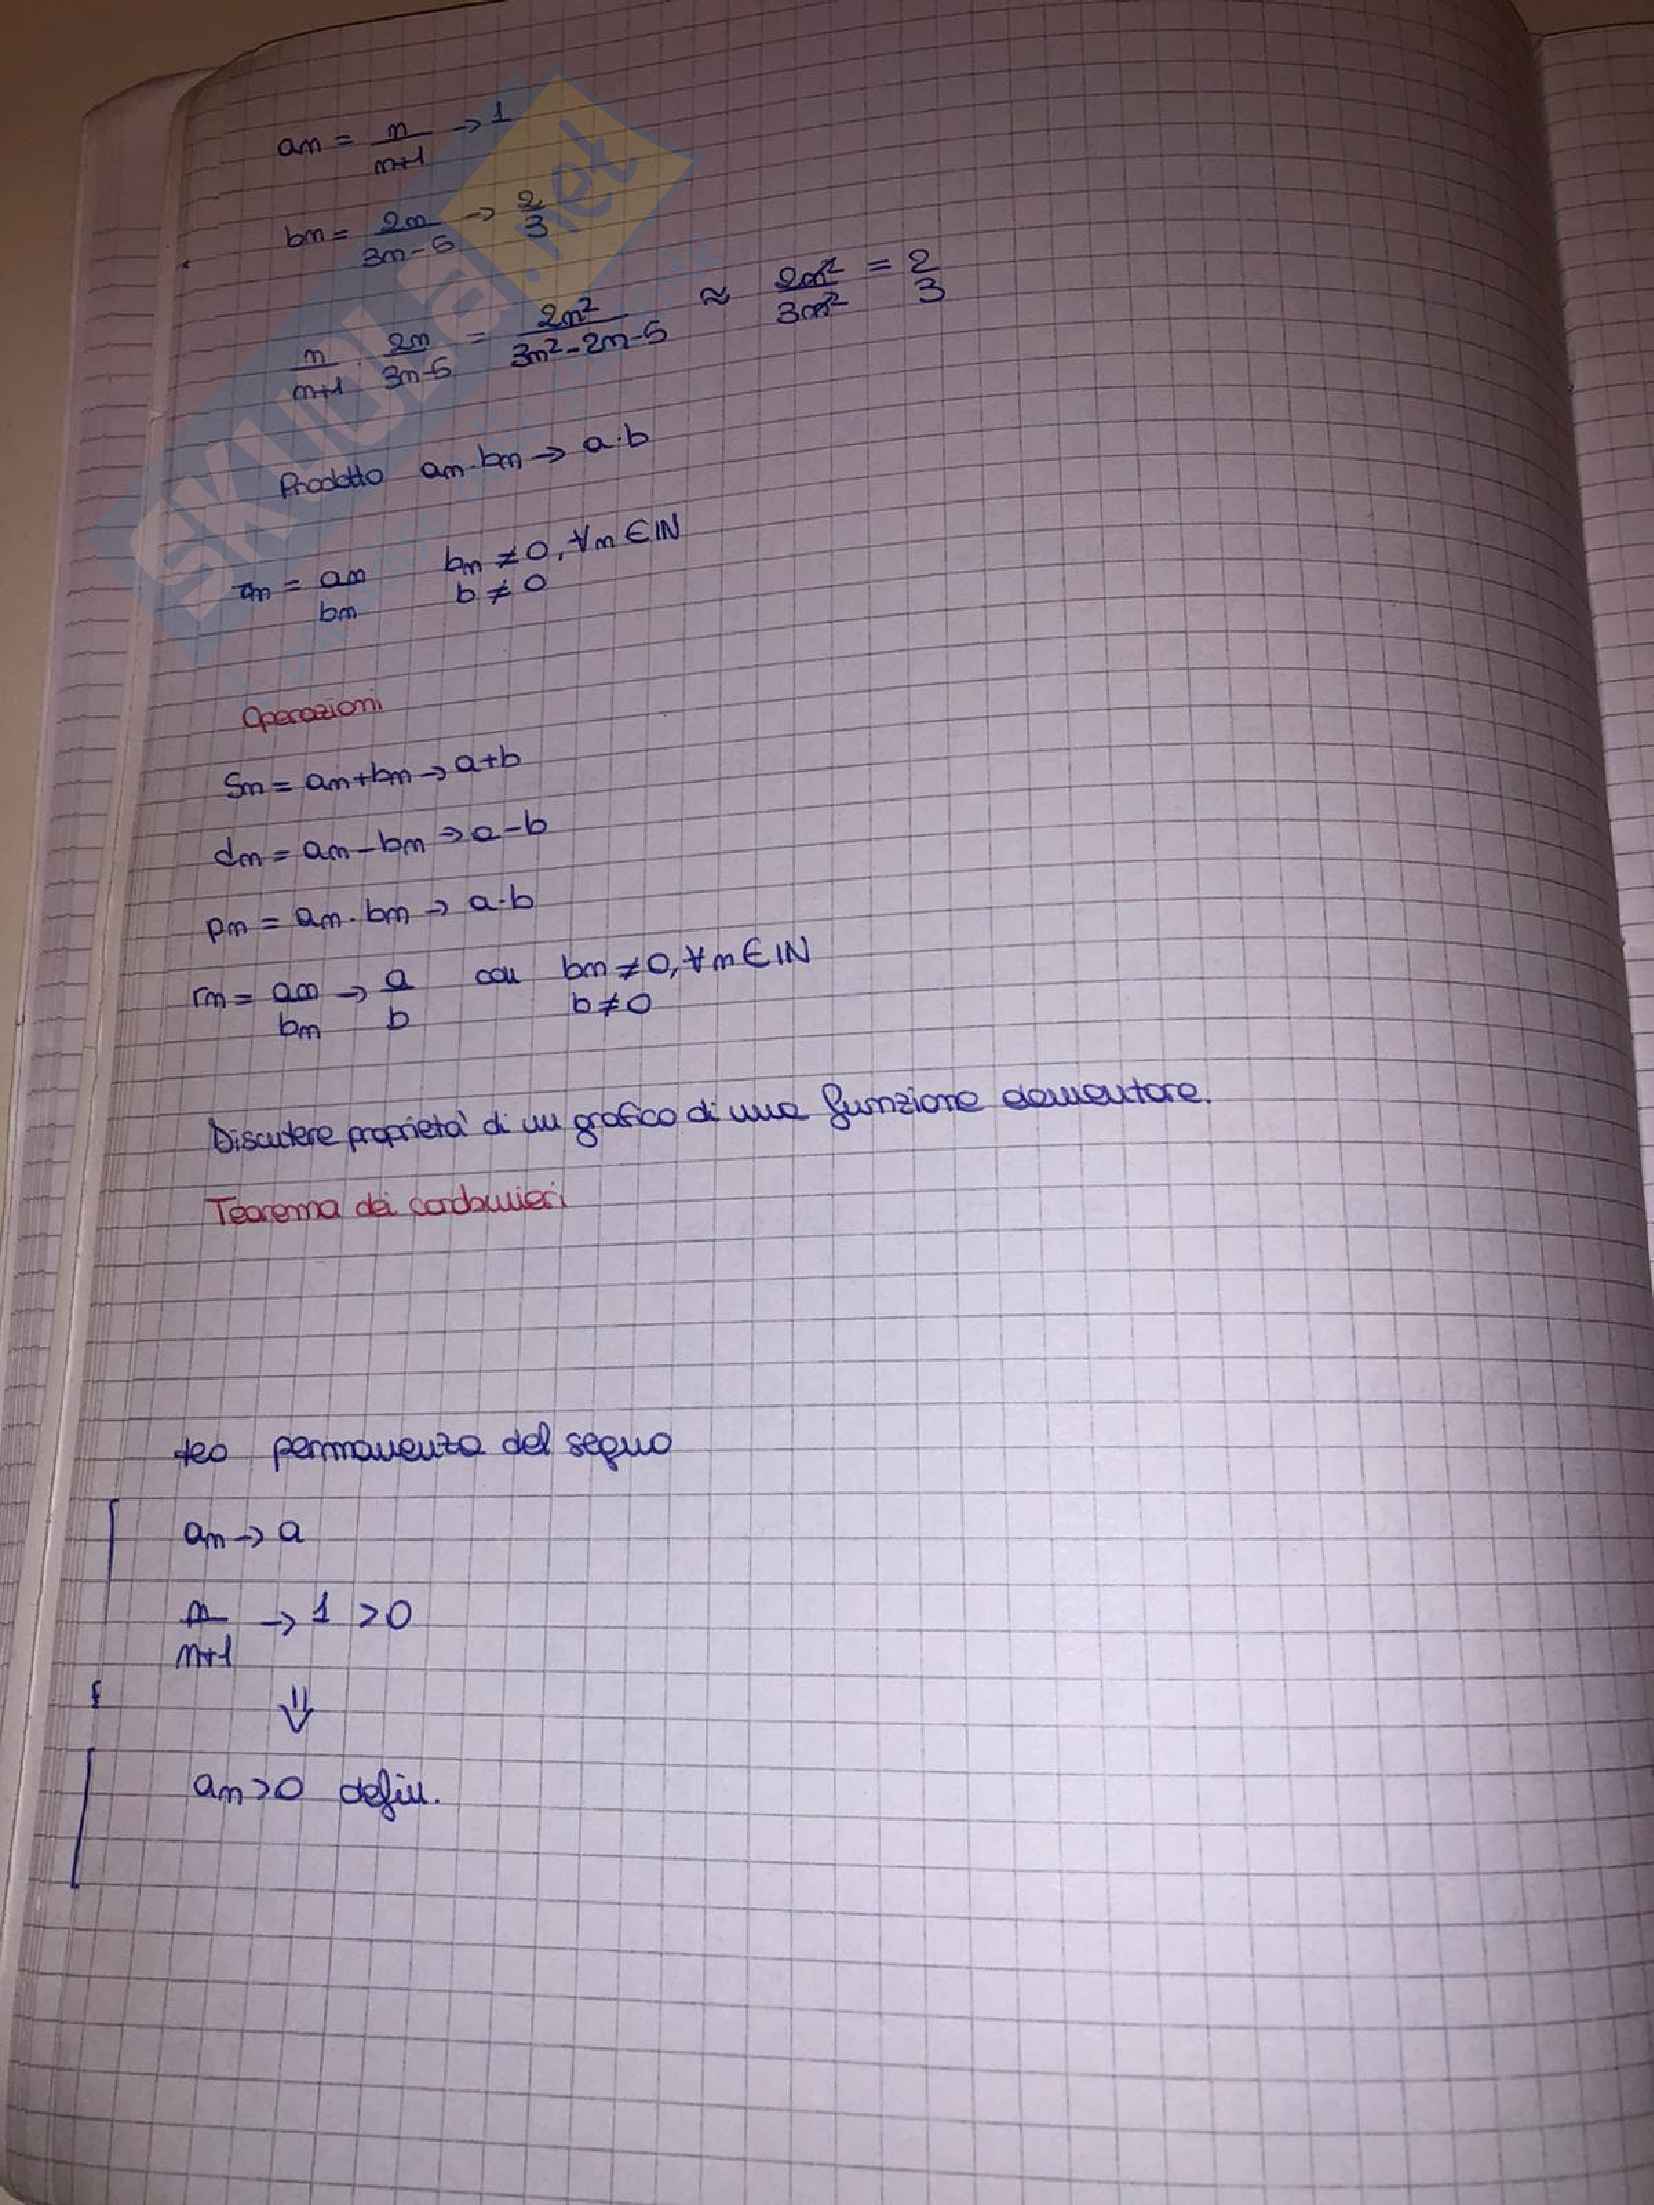 an = n/n+1 → 1
bn = 2n/3n-5 → 2/3
n/n+1 · 2n/3n-5 = 2n²/3n²-2n-5 ≈ 2n²/3n² = 2/3
Prodotto an·bn → a·b
rn = an/bn bn ≠ 0, ∀n ∈ IN
b ≠ 0
Operazioni
Sn = an+bn → a+b
dn = an-bn → a-b
pn = an·bn → a·b
rn = an/bn → a/b con bn ≠ 0, ∀n ∈ IN
b ≠ 0
Discutere proprietà di un grafico di una funzione elementare.
Teorema dei carabinieri
teo permanenza del segno
an → a
n/n+1 → 1 > 0
⇓
an > 0 defin.
SKUOLA.net